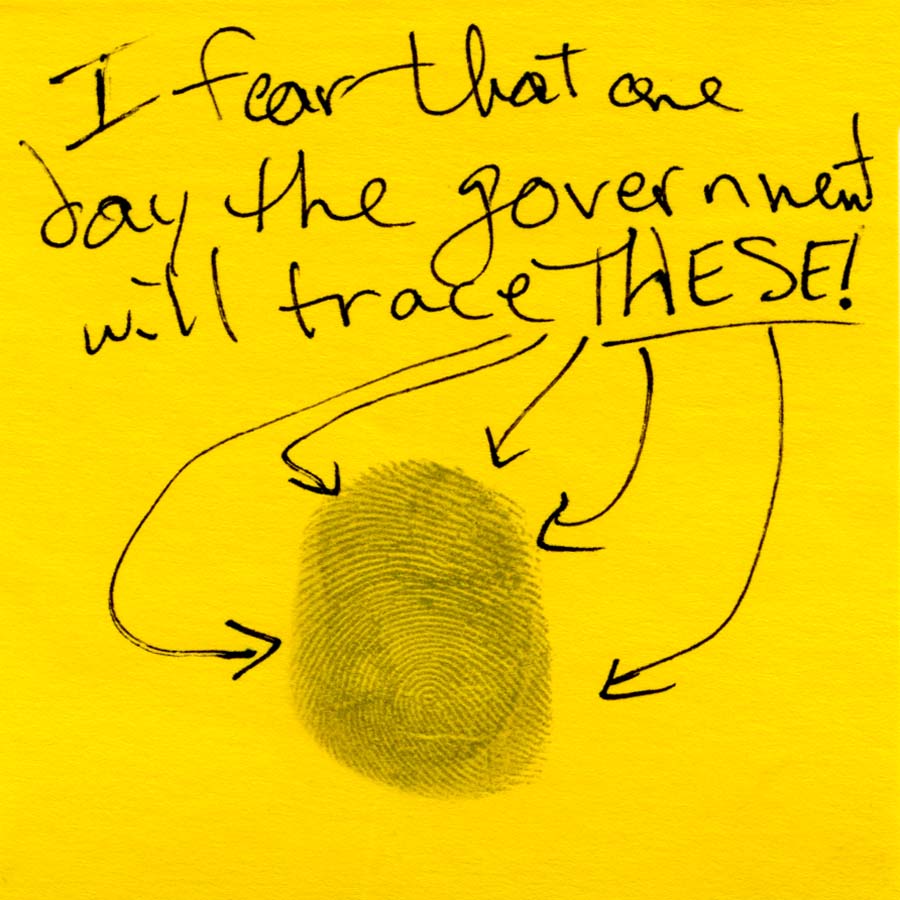 I fear that one
day the government
will trace THESE!